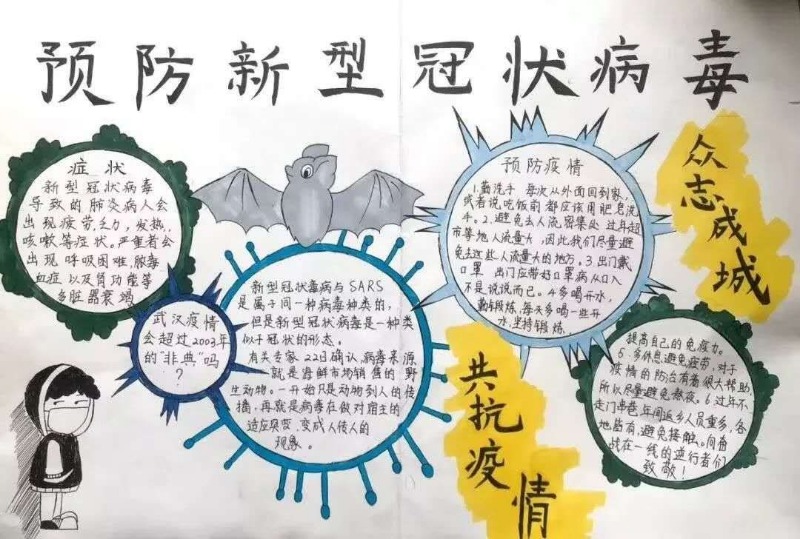 预防新型冠状病毒
症状
新型冠状病毒
导致的肺炎病人会
出现疲劳,乏力,发热,
咳嗽等症状,严重者会
出现呼吸困难,脓毒
血症以及肾功能等
多脏器衰竭
武汉疫情
会超过2003年
的"非典"吗
?
新型冠状毒病与SARS
是属于同一种病毒种类的,
但是新型冠状病毒是一种类
似于冠状的形态。
有关专家22日确认,病毒来源
就是海鲜市场销售的野
生动物。一开始只是动物到人的传
播,再就是病毒在做对宿主的
适应突变,变成人传人的
现象。
预防疫情
1.勤洗手 每次从外面回到家,
或者说吃饭前都应该用肥皂洗
手。2.避免去人流密集处 过年超
市等地人流量大,因此我们尽量避
免去这些人流量大的地方。3.出门戴
口罩 出门应带好口罩病从口入
不是说说而已。4.多喝开水,
勤锻炼,每天多喝一些开
水,坚持锻炼
提高自己的免疫力。
6.多休息,避免疲劳,对于
疫情的防治有着很大帮助
所以尽量避免熬夜。6过年不
走门串巷,年间返乡人员重多,各
地皆有,避免接触。向奋
战在一线的逆行者们
致敬!
众志成城
共抗疫情